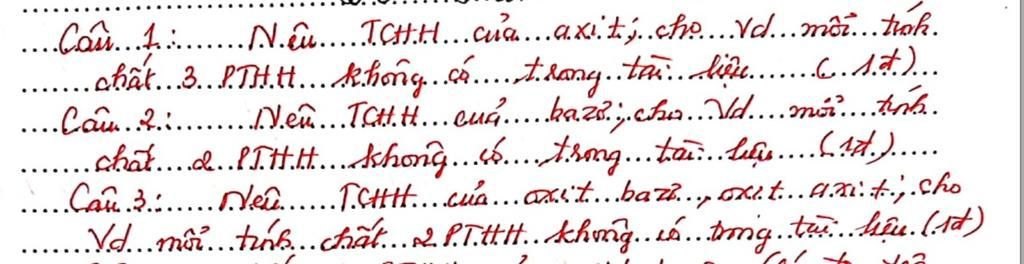 Câu 1: Nêu TCHH của axit; cho Vd mỗi tính
chất 3 PTHH không có trong tài liệu (1đ)
Câu 2: Nêu TCHH cuả bazơ; cho Vd mỗi tính
chất 2 PTHH không có trong tài liệu (1đ)
Câu 3: Nêu TCHH của oxit bazơ, oxit axit; cho
Vd mỗi tính chất 2 PTHH không có trong tài liệu (1đ)